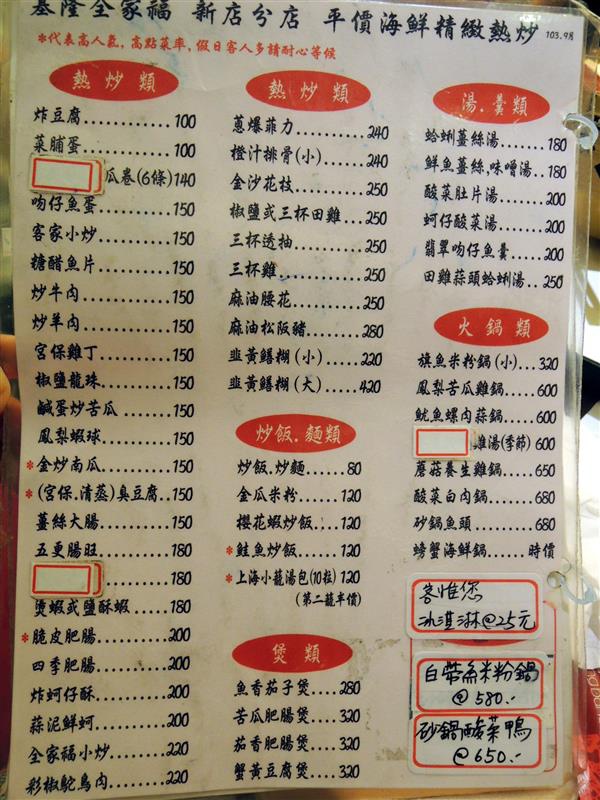 基隆全家福 新店分店 平價海鮮精緻熱炒 103.9月
*代表高人氣,高點菜率,假日客人多請耐心等候
熱炒類
炸豆腐............100
菜脯蛋............100
瓜卷(6條)140
吻仔魚蛋..........150
客家小炒..........150
糖醋魚片..........150
炒牛肉............150
炒羊肉............150
宮保雞丁..........150
椒鹽龍珠..........150
鹹蛋炒苦瓜........150
鳳梨蝦球..........150
*金炒南瓜..........150
*(宮保.清蒸)臭豆腐..150
薑絲大腸..........150
五更腸旺..........180
..........180
燙蝦或鹽酥蝦......180
*脆皮肥腸..........200
四季肥腸..........200
炸蚵仔酥..........200
蒜泥鮮蚵..........200
全家福小炒........220
彩椒鴕鳥肉........220
熱炒類
蔥爆菲力..........240
橙汁排骨(小)......240
金沙花枝..........250
椒鹽或三杯田雞....250
三杯透抽..........250
三杯雞............250
麻油腰花..........250
麻油松阪豬........280
韭黃鱔糊(小)......220
韭黃鱔糊(大)......420
炒飯.麵類
炒飯.炒麵......80
金瓜米粉......120
櫻花蝦炒飯....120
*鮭魚炒飯......120
*上海小籠湯包(10粒)120
(第二籠半價)
煲類
魚香茄子煲....280
苦瓜肥腸煲....320
茄香肥腸煲....320
蟹黃豆腐煲....320
湯.羹類
蛤蜊薑絲湯......180
鮮魚薑絲,味噌湯..180
酸菜肚片湯......200
蚵仔酸菜湯......200
翡翠吻仔魚羹....200
田雞蒜頭蛤蜊湯..250
火鍋類
旗魚米粉鍋(小)...320
鳳梨苦瓜雞鍋....600
魷魚螺肉蒜鍋....600
雞湯(季節)600
蘑菇養生雞鍋....650
酸菜白肉鍋......680
砂鍋魚頭........680
螃蟹海鮮鍋....時價
客惟您
冰淇淋@25元
白帶魚米粉鍋
@580.-
砂鍋酸菜鴨
@650.-